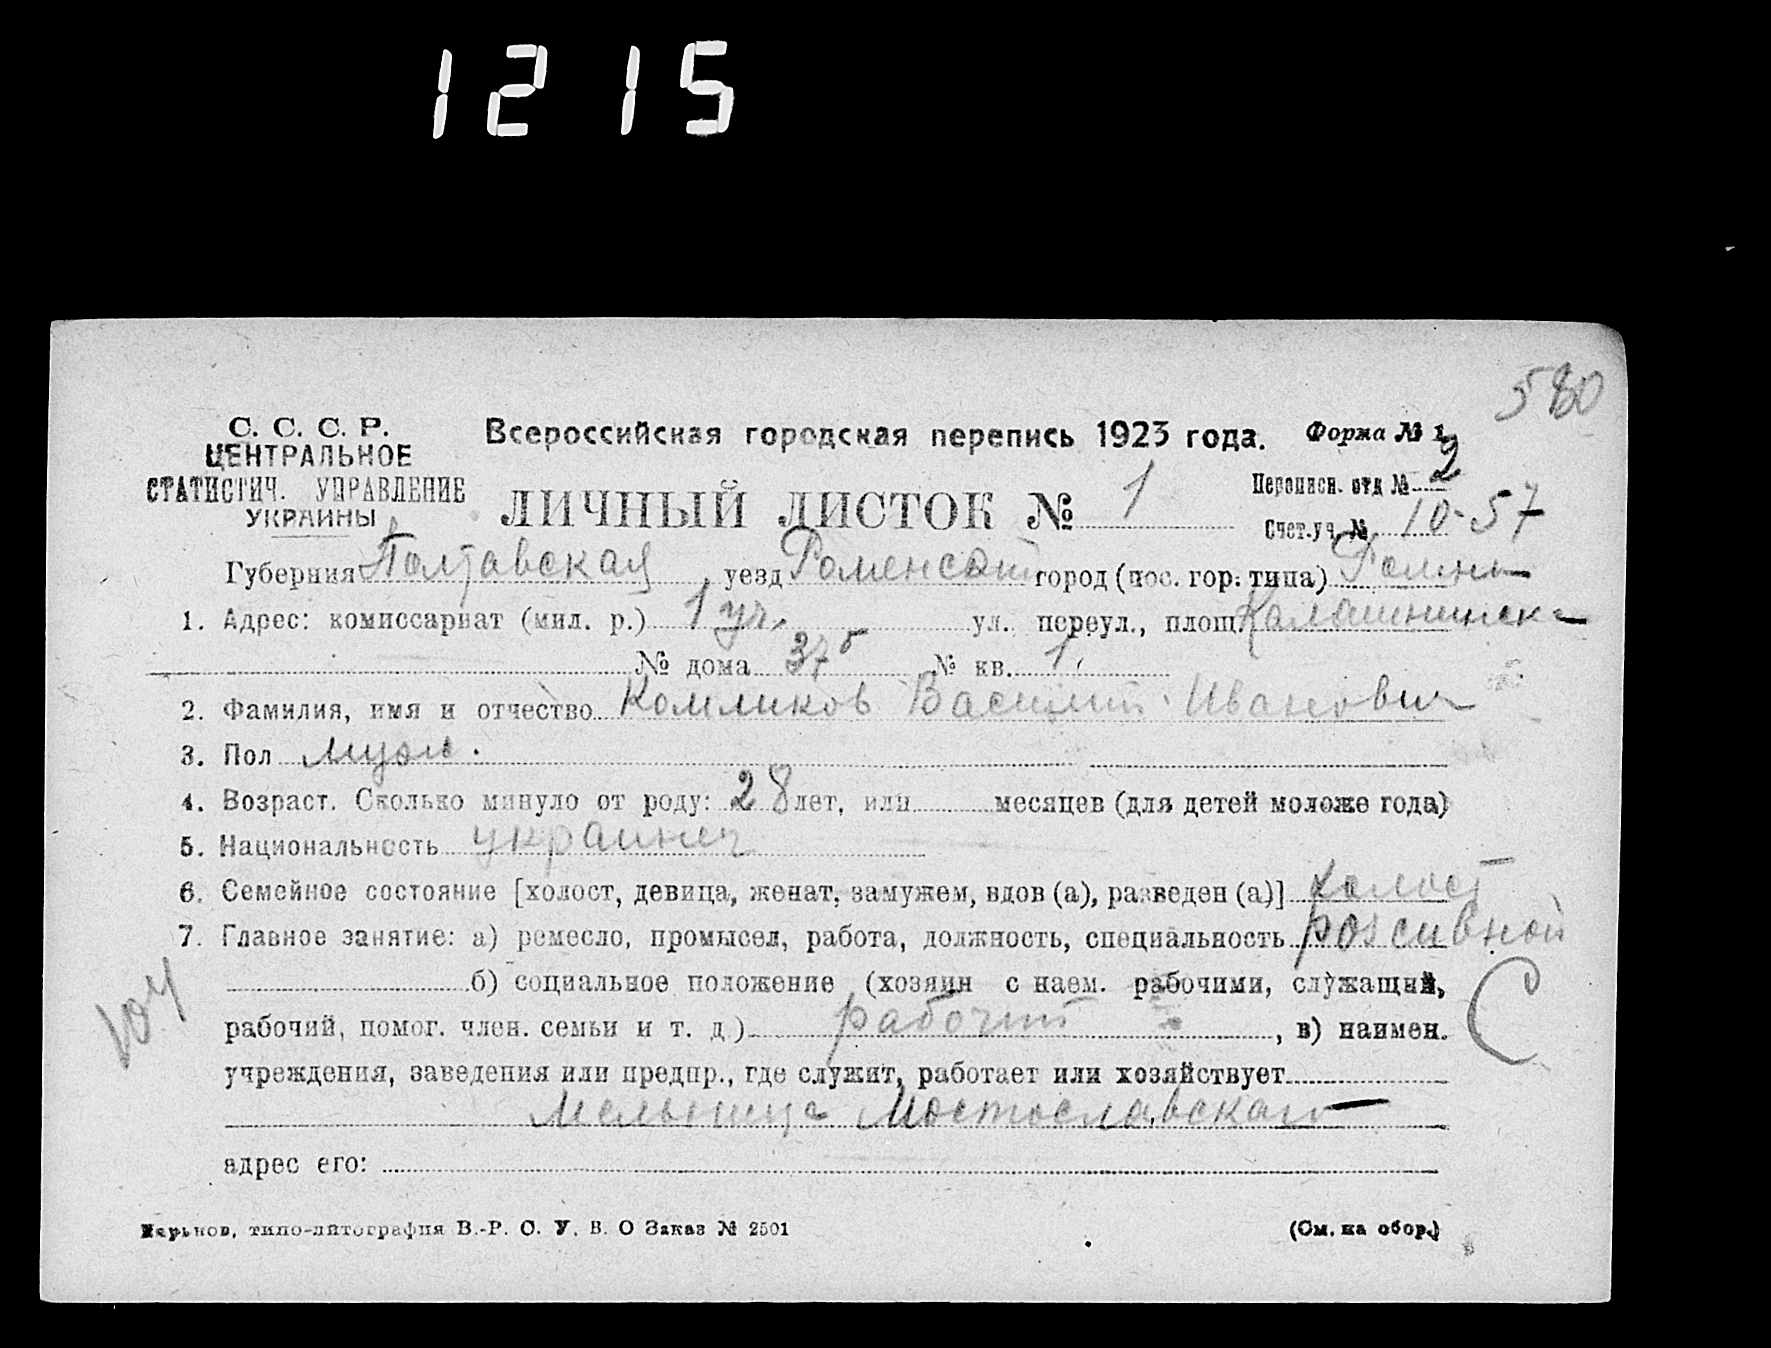 1215
580
С. С. С. Р.
ЦЕНТРАЛЬНОЕ
СТАТИСТИЧ. УПРАВЛЕНИЕ
УКРАИНЫ
Всероссийская городская перепись 1923 года.
Форма № 1
ЛИЧНЫЙ ЛИСТОК № 1
Переписн. отд № 2
Счет.уч. № 10-57
Губерния Полтавская уезд Роменский город (пос. гор. типа) Ромны
1. Адрес: комиссариат (мил. р.) 1 уч. ул. переул., площ.
№ дома 37 б № кв. 1
2. Фамилия, имя и отчество Комликов Василий Иванович
3. Пол муж.
4. Возраст. Сколько минуло от роду: 28 лет, или месяцев (для детей моложе года)
5. Национальность украинец
6. Семейное состояние [холост, девица, женат, замужем, вдов (а), разведен (а)] холост
7. Главное занятие: а) ремесло, промысел, работа, должность, специальность
б) социальное положение (хозяин с наем. рабочими, служащий,
рабочий, помог. член. семьи и т. д.) рабочий, в) наимен.
учреждения, заведения или предпр., где служит, работает или хозяйствует
Мельница
адрес его:
Харьков, типо-литография В.-Р. С. У. В. О Заказ № 2501
(См. на обор.)